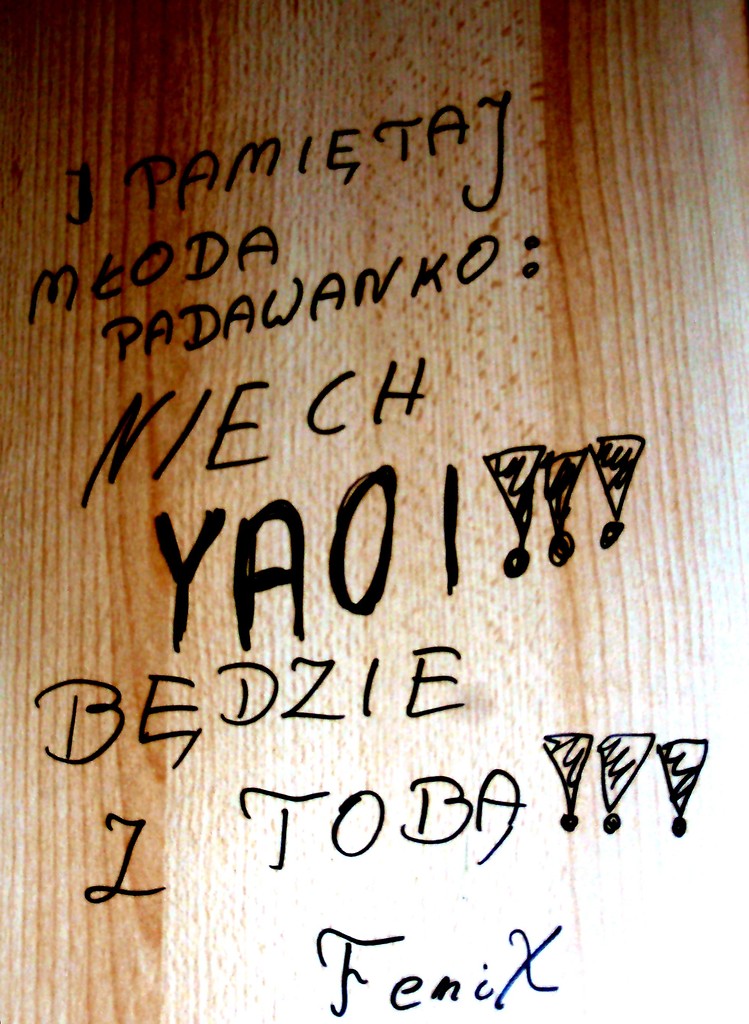 I PAMIĘTAJ
MŁODA
PADAWANKO:
NIECH
YAOI!!!
BĘDZIE
Z TOBĄ!!!
FeniX